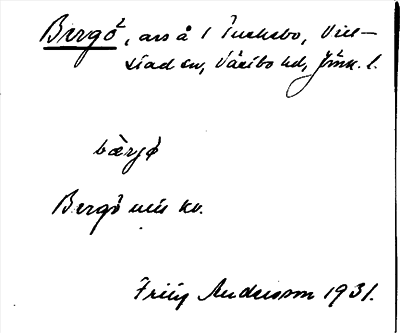 Bergö, ars å i Tuckebo, Vill-
stad sn, Västbo hd, Jönk. l.
bærjö
Bergö utis kv.
Fritz Andersson 1931.